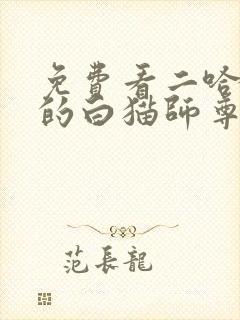 免費看二哈
的白猫師尊
范長龍